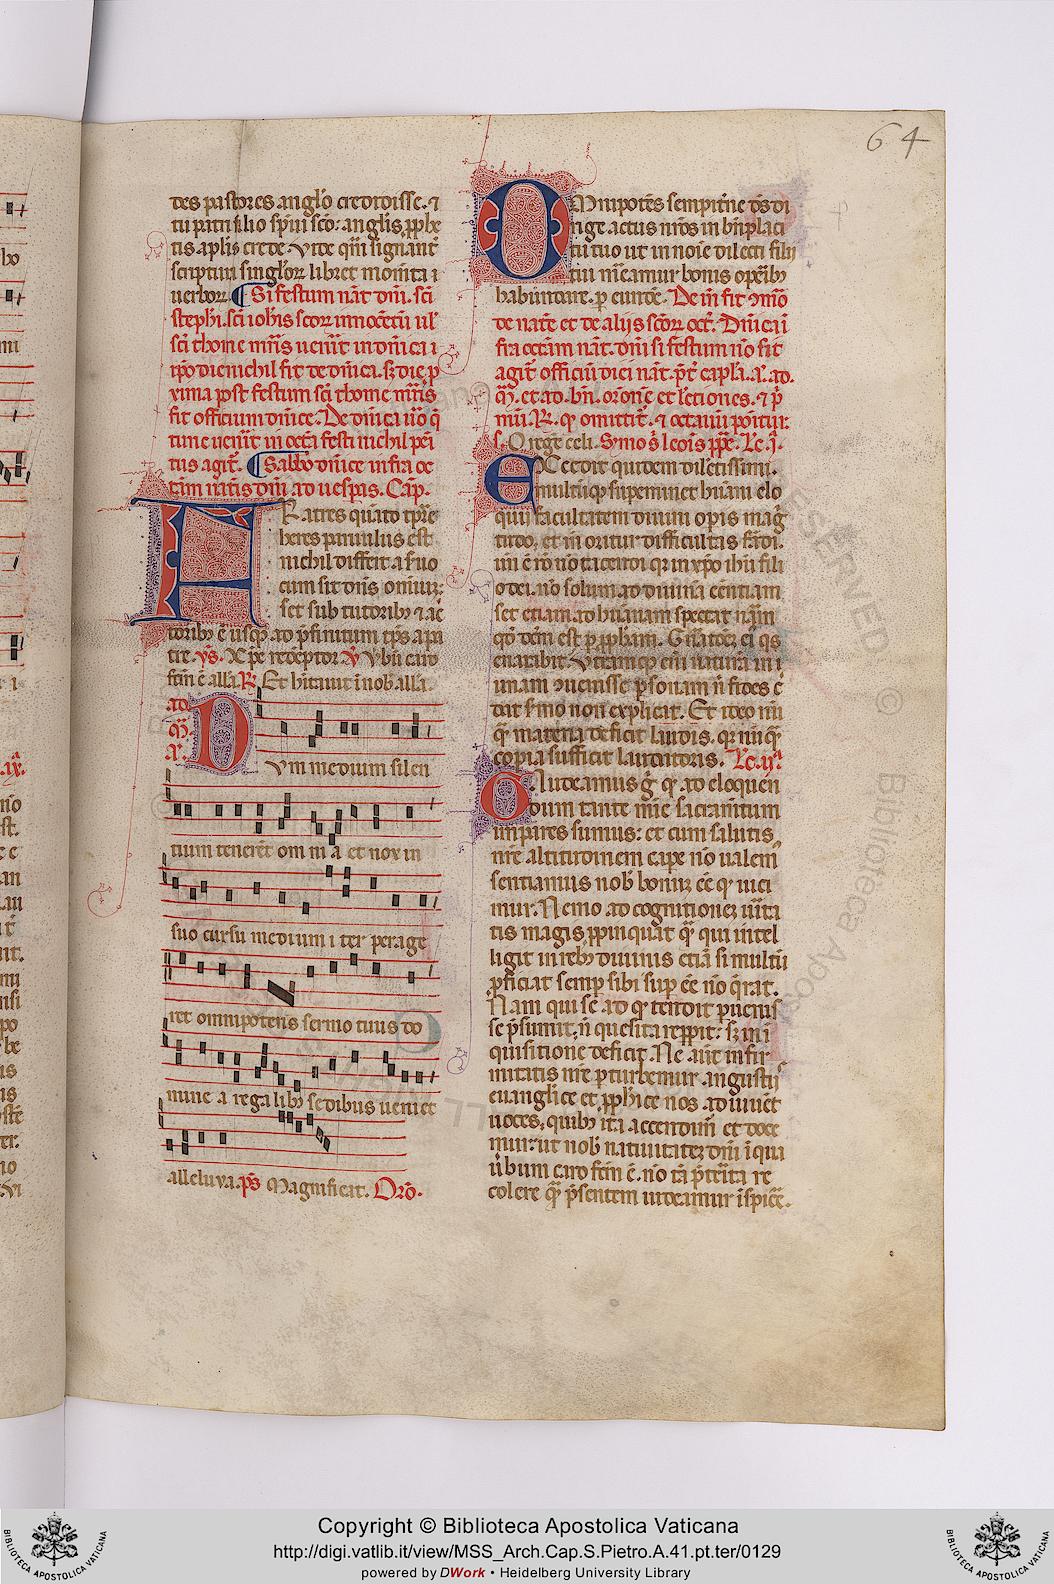 64
des pastores anglo credidisse. ⁊
tu patri filio spui sco: anglis, pphe
tis aplis crede. Vide qm signant
scriptum singlor libret momta i
uerbor. Si festum nat dni. sci
stephi. sci iohis scor innocetu ul
sci thome mris uenit in dnica i
ipo die nichil fit de dnica. sz die p
xima post festum sci thome mris
fit officium dnice. De dnica uo q
tunc uenit in octa festi nichil peni
tus agit. Sabbo dnice infra oc
tam natis dni ad uespas. Cap.
FRatres quato tpre
heres paruulus est
nichil differt a seruo
cum sit dns omniu:
set sub tutorib ⁊ ac
torib e usq ad pfinitum tps a pa
tre. vs. Xpe redeptor V Vbu caro
ftm e alla R Et hitauit i nob alla.
ad
M.
a.
Dvm medium silen
tium tenerent om ni a et nox in
suo cursu medium i ter perage
ret omnipotens sermo tuus do
mine a rega lib sedibus ueniet
alleluya. ps Magnificat. Oro.
OMnipotes sempitne ds di
rige actus nros in bnplaci
tu tuo ut in noie dilecti filij
tui meamur bonis opib
habundare. p eunde. De ni fit omo
de nate et de alijs scor oct. Dnica i
fra octam nat. dni si festum no fit
agit officiu diei nat. pt capla. a. ad.
M. et ad. bn. orone et lectiones. ⁊ p
mu. R. q omittit. ⁊ octauu ponitur.
s. O rege celi. Smo s leois ppe. Lc. j.
EXcedit quidem dilectissimi.
multuq supeminet huani elo
quij facultatem diuini opis mag
tudo, et in oritur difficultas fandi.
un e ro no tacendi qr in xpo ihu fili
o dei. no solum ad diuina centiam
set etiam ad huanam spectat nam
qd dem est p ppham. Gnatoe ei qs
enarrabit. Vtramq eni natura in i
unam ouenisse psonam n fides c
dat smo non explicat. Et ideo nu
q materia deficit laudis. qr nuq
copia sufficit laudatoris. Lc. ij
GAudeamus g q ad eloquen
dum tante mie sacramtum
impares sumus: et cum salutis
nre altitudinem cape no ualem
sentiamus nob bonu ee q uici
mur. Nemo ad cognitione uita
tis magis ppinquat q qui intel
ligit in reb diuinis etia si multu
pficiat semp sibi sup ee no qrat.
Nam qui se ad q tendit puenis
se psumit, n quesita reppit: sz in i
quisitione deficit. Ne aut infir
mitatis nre pturbemur angustij
euanglice et pphice nos adiuuet
uoces, quib ita accendim et doce
mur: ut nob natiuitate dni i qua
ubum caro ftm e. no ta pterita re
colere q psentem uideamur ispice.
Copyright © Biblioteca Apostolica Vaticana
http://digi.vatlib.it/view/MSS_Arch.Cap.S.Pietro.A.41.pt.ter/0129
powered by DWork • Heidelberg University Library